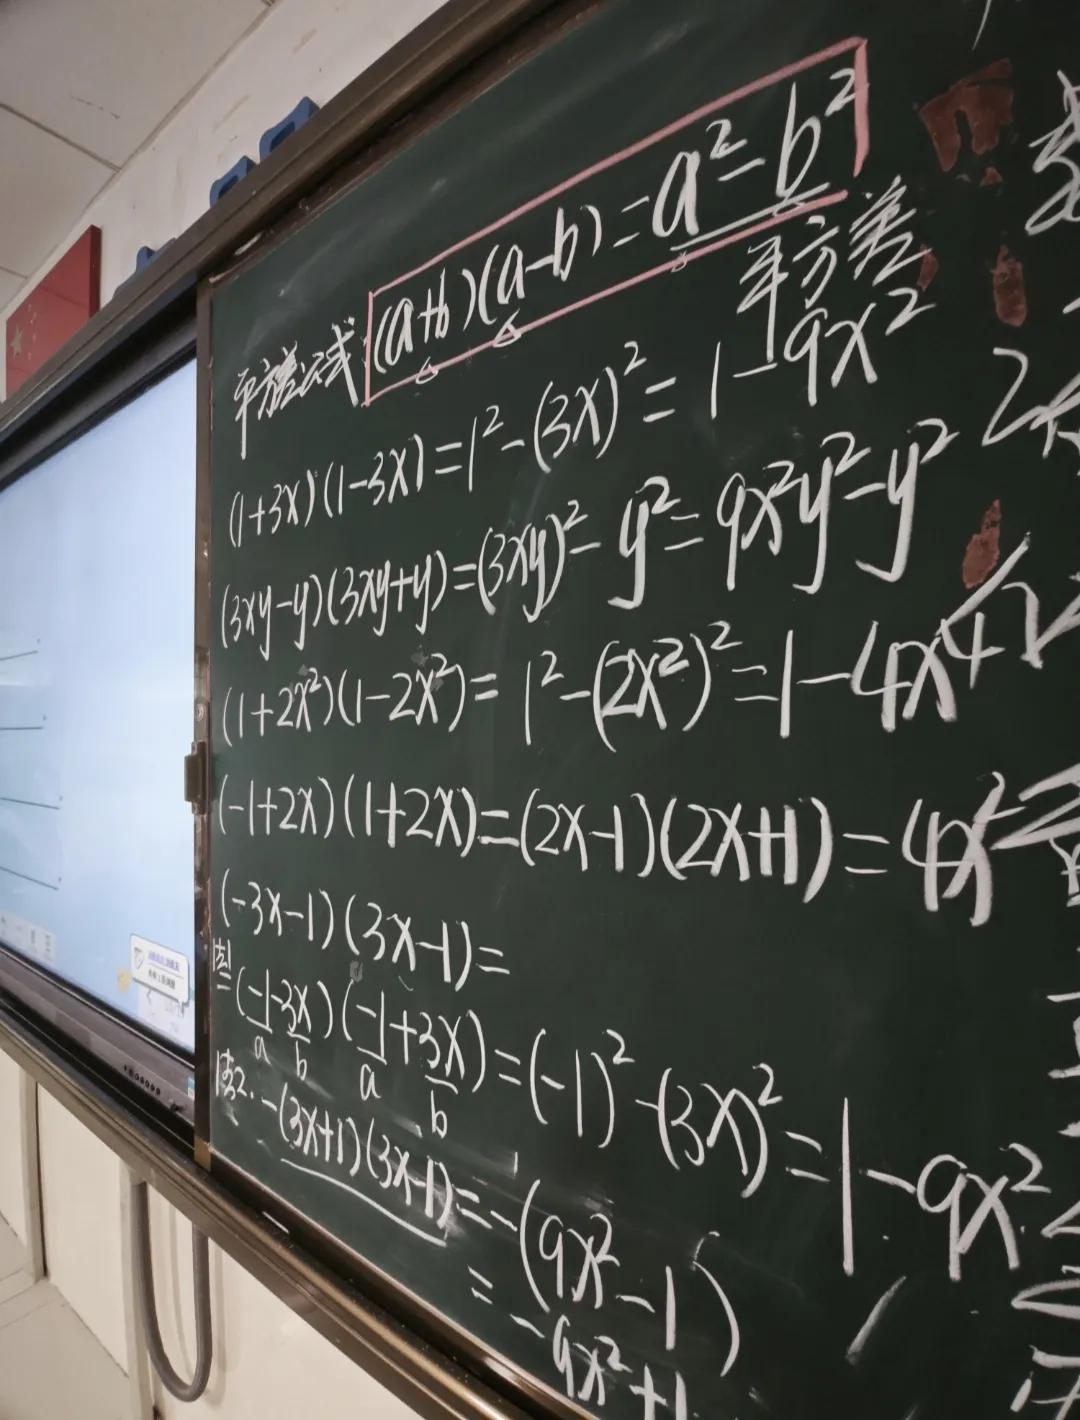 平方差公式 (a+b)(a-b)=a²-b²
平方差
(1+3x)(1-3x)=1²-(3x)²=1-9x²
(3xy-y)(3xy+y)=(3xy)²-y²=9x²y²-y²
(1+2x²)(1-2x²)=1²-(2x²)²=1-4x⁴
(-1+2x)(1+2x)=(2x-1)(2x+1)=4x²
(-3x-1)(3x-1)=
法1
=(-1-3x)(-1+3x)=(-1)²-(3x)²=1-9x²
a b a b
法2. -(3x+1)(3x-1)=-(9x²-1)
=-9x²+1